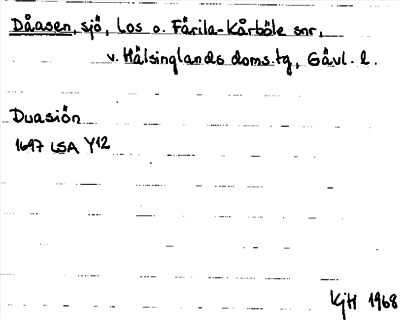 Dåasen, sjö, Los o. Färila-Kårböle snr,
v. Hälsinglands doms.tg, Gävl. l.
Duasiön
1697 LSA Y12
KjH 1968